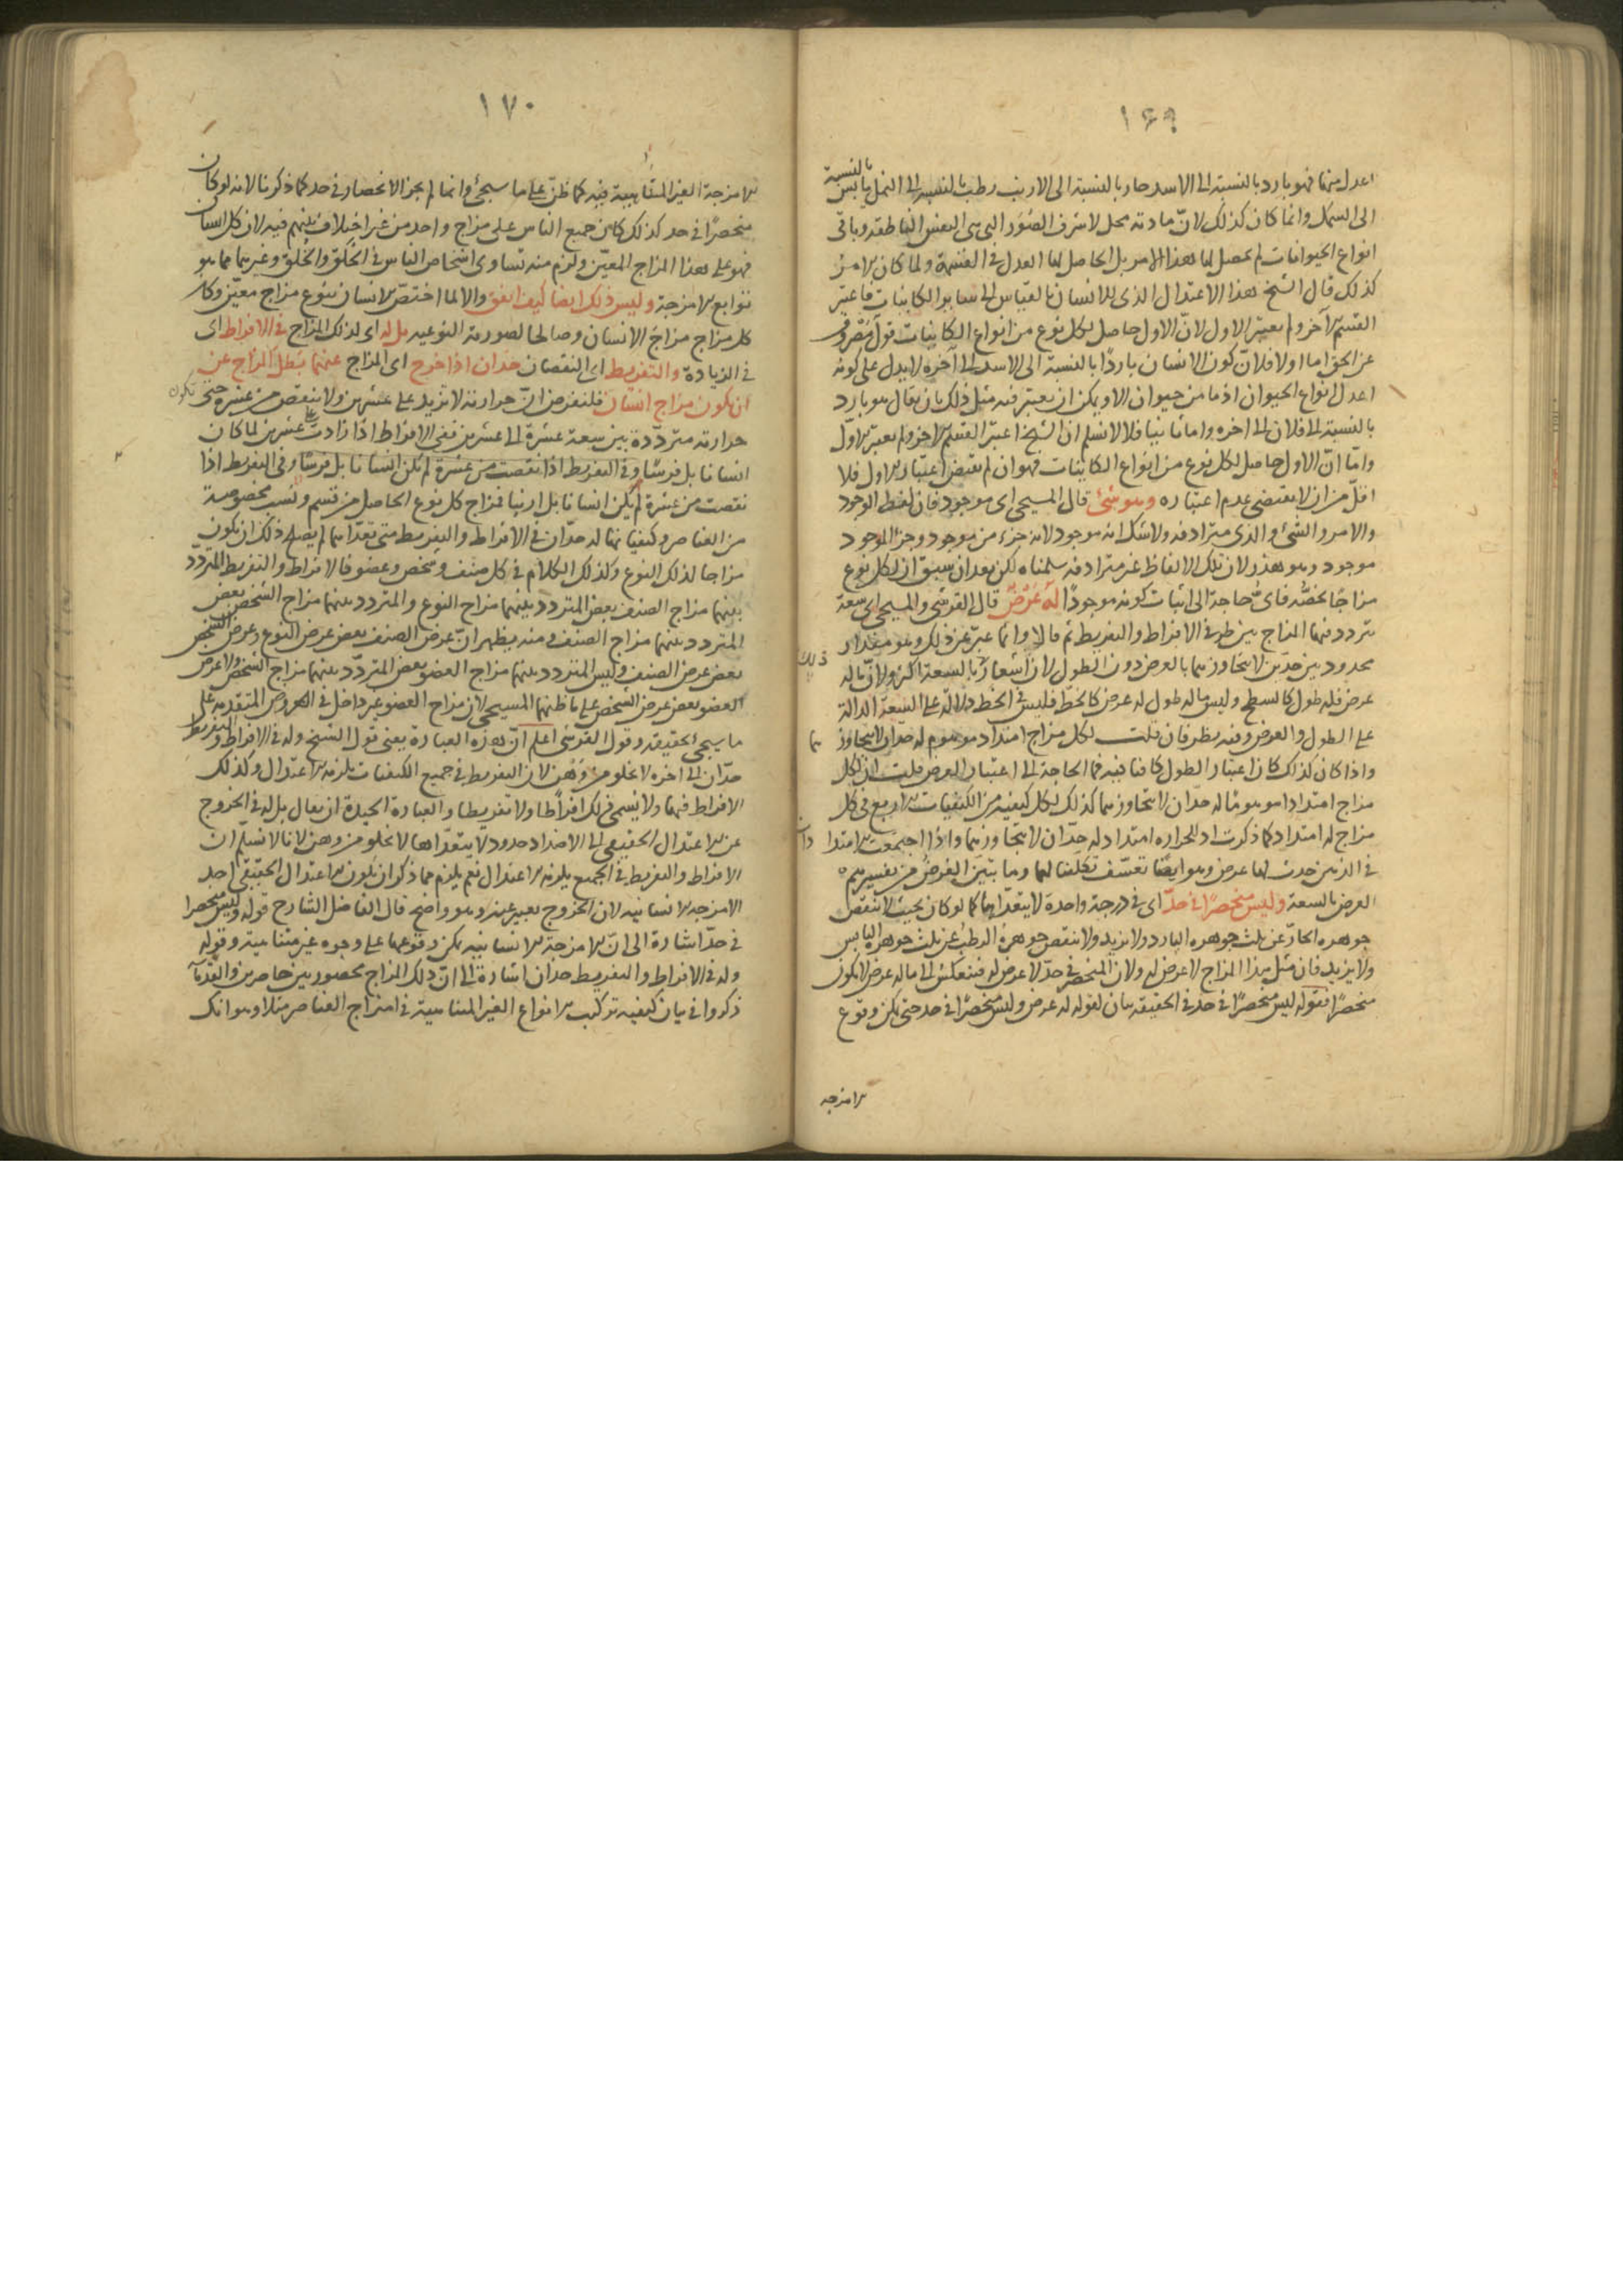 ١٦٩
اعدل منها فهو بارد بالنسبة الى الاسد حار بالنسبة الى الارنب رطب بالنسبة الى النمل يابس بالنسبة
الى السمك وانما كان كذلك لانّ مادته محل لاشرف الصُوَر التى هى النفس الناطقة وباقى
انواع الحيوانات لم يحصل لها هذا الامر بل الحاصل لها العدل فى القسمة ولما كان الامر
كذلك قال الشيخ هذا الاعتدال الذى للانسان بالقياس الى ساير الكاينات فاعتبر
القسم الآخر ولم يعتبر الاول لانّ الاول حاصل لكل نوع من انواع الكاينات قول
عن الحق اما اولا فلانّ كون الانسان باردًا بالنسبة الى الاسد الى آخره لا يدل على كونه
اعدل انواع الحيوان اذ ما من حيوان الا ويمكن ان يعتبر فيه مثل ذلك بان يقال هو بارد
بالنسبة الى فلان الى اخره واما ثانيا فلا لانسلم ان الشيخ اعتبر القسم الاخر ولم يعتبر الاوّل
وامّا انّ الاول حاصل لكل نوع من انواع الكاينات فهو ان لم يقتض اعتبار الاول فلا
اقلّ من ان لا يقتضى عدم اعتباره وهو شئ قال المسيحى اى موجود فان لفظ الوجود
والامر والشئ والذى مترادفه ولاشك انه موجود لانه جزء من موجود وجزء الموجود
موجود وهو هذر لان تلك الالفاظ غير مترادفه سلمناه لكن بعد ان سبق ان لكل نوع
مزاجًا يخصّه فاىّ حاجة الى اثبات كونه موجودًا لهُ عَرْضٌ قال القرشى والمسيحى اى سعة
يتردد فيها المزاج بين طرفى الافراط والتفريط ثم قالا وانما عبّر عن ذلك وهو مقدار
محدود بين حدّين لا يتجاوزهما بالعرض دون الطول لان اشعاره بالسعة اكثر ولانّ ماله ذلك
عرض فله طول كالسطح وليس ماله طول له عرض كالخط فليس فى الخط دلالة على السعة الدالة
على الطول والعرض وفيه نظر فان قلت لكل مزاج امتداد موهوم له حدان لا يتجاوزهما
واذا كان كذلك كان اعتبار الطول كافيا فيه فما الحاجة الى اعتبار العرض قلت ان لكل
مزاج امتدادا موهوما له حدّان لا يتجاوزهما كذلك لكل كيفية من الكيفيات الاربع فى كل
مزاج له امتداد كما ذكرت اذ للحراره امتداد له حدّان لا يتجاوزهما واذا اجتمعت الامتدادات
فى الذهن حدث لها عرض وهو ايضًا تعسّف تكلفنا لهما وما بيّن الغرض من تفسيرهم
العرض بالسعة وليس منحصرًا فى حدّ اى فى درجة واحدة لا يتعدّاها كما لو كان بحيث لا ينقص
جوهره الحارّ عن ثلث جوهره البارد ولا يزيد ولا ينقص جوهرهُ الرطبُ عن ثلث جوهره اليابس
ولا يزيد فان مثل هذا المزاج لا عرض له ولان المنحصر فى حدّ لا عرض له فينعكس الى ماله عرض لا يكون
منحصرًا فقوله ليس منحصرًا فى حد فى الحقيقة بيان لقوله له عرض وليس منحصرًا فى حد حتى يمكن وقوع
الامزجه
١٧٠
الامزجة الغير المتناهية فيه كما ظنّ على ما سيجئ وانما لم يجز الانحصار فى حد كما ذكرنا لانه لو كان
منحصرًا فى حد كذلك كان جميع الناس على مزاج واحد من غير اختلاف بينهم فيه لان كل انسان
فهو على هذا المزاج المعيّن ولزم منه تساوى اشخاص الناس فى الخَلق والخُلق وغيرهما مما هو
توابع الامزجة وليس ذلك ايضا كيف اتفق والا لما اختصّ الانسان بنوع مزاج معيّن وكان
كل مزاج مزاجَ الانسان وصالحا لصورته النوعيه بل له اى لذلك المزاج فى الافراط اى
فى الزيادة والتفريط اى النقصان حدان اذا خرج اى المزاج عنهما بَطل المزاج عن
ان يكون مزاج انسان فلنفرض انّ حرارته لا تزيد على عشرين ولا ينقص من عشرة حتى تكون
حرارته متردّدة بين سعة عشرة الى عشرين ففى الافراط اذا زادت على عشرين لما كان
انسانا بل فرسًا وفى التفريط اذا نقصت من عشرة لم تكن انسانا بل فرسًا وفى التفريط اذا
نقصت من عشرة لم يكن انسانا بل ارنبا فمزاج كل نوع الحاصل من قسم ونسب مخصوصة
من العناصر وكيفياتها له حدّان فى الافراط والتفريط متى تعدّاهما لم يصلح ذلك ان يكون
مزاجا لذلك النوع وكذلك الكلام فى كل صنف وشخص وعضو فالافراط والتفريط المتردّد
بينهما مزاج الصنف بعض المتردد بينهما مزاج النوع والمتردد بينهما مزاج الشخص بعض
المتردد بينهما مزاج الصنف ومنه يظهر انّ عرض الصنف بعض عرض النوع وعرض الشخص
بعض عرض الصنف وليس المتردد بينهما مزاج العضو بعض المتردّد بينهما مزاج الشخص ولا عرض
العضو بعض عرض الشخص على ما ظنهما المسيحى لان مزاج العضو غير داخل فى العروض المتقدمة على
ما سيجئ تحقيقه وقول القرشى اعلم انّ هذه العبارة يعنى قول الشيخ وله فى الافراط والتفريط
حدّان الى اخره لا يخلو من وَهْن لان التفريط فى جميع الكيفيات يلزمه الاعتدال وكذلك
الافراط فيها ولا يسمى ذلك افراطا ولا تفريطا والعبارة الجيدة ان يقال بل له فى الخروج
عن الاعتدال الحقيقى الى الاضداد حدود لا يتعدّاها لا يخلو من وهن لانا لا نسلم ان
الافراط والتفريط فى الجميع يلزمه الاعتدال نعم يلزم مما ذكر ان يكون الاعتدال الحقيقى احد
الامزجه الانسانيه لان الخروج تعبير عنه وهو واضح قال الفاضل الشارح قوله وليس منحصرا
فى حدّ اشارة الى انّ الامزجة الانسانيه يمكن وقوعها على وجوه غير متناهية وقوله
وله فى الافراط والتفريط حدان اشارة الى انّ ذلك المزاج محصور بين حاصرين والقدمآ
ذكروا فى بيان كيفيه تركيب الانواع الغير المتناهية فى امتزاج العناصر مثلا وهو انك